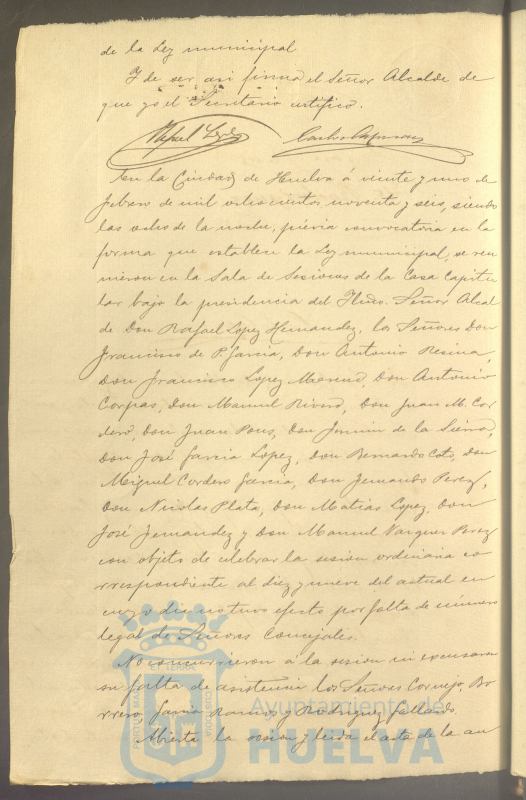 de la Ley municipal
Y de ser asi firma el Señor Alcalde de
que yo el Secretario certifico.
Rafael Lopez
En la Ciudad de Huelva á veinte y uno de
febrero de mil ochocientos noventa y seis, siendo
las ocho de la noche, prévia convocatoria en la
forma que establece la Ley municipal, se reu
nieron en la Sala de Sesiones de la Casa Capitu
lar bajo la presidencia del Iltmo. Señor Alcal
de Don Rafael Lopez Hernandez, los Señores Don
Francisco de P. Garcia, Don Antonio Resina,
Don Francisco Lopez Moreno, Don Antonio
Corpas, Don Manuel Rivero, Don Juan M. Cor
dero, Don Juan Pons, Don Fermin de la Sierra,
Don José Garcia Lopez, Don Bernardo Coto, Don
Miguel Cordero Garcia, Don Fernando Perez,
Don Nicolas Plata, Don Matias Lopez, Don
José Fernandez y Don Manuel Vazquez Perez
con objeto de celebrar la sesion ordinaria co
rrespondiente al diez y nueve del actual en
cuyo dia no tuvo efecto por falta de número
legal de Señores Concejales.
No concurrieron á la sesion ni escusaron
su falta de asistencia los Señores Cornejo, Bo
rrero, Garcia Ramos y Rodriguez Gallardo.
Abierta la sesion y leida el acta de la an
PORTUS MARIS ET TERRÆ CUSTODIA
Ayuntamiento de
HUELVA